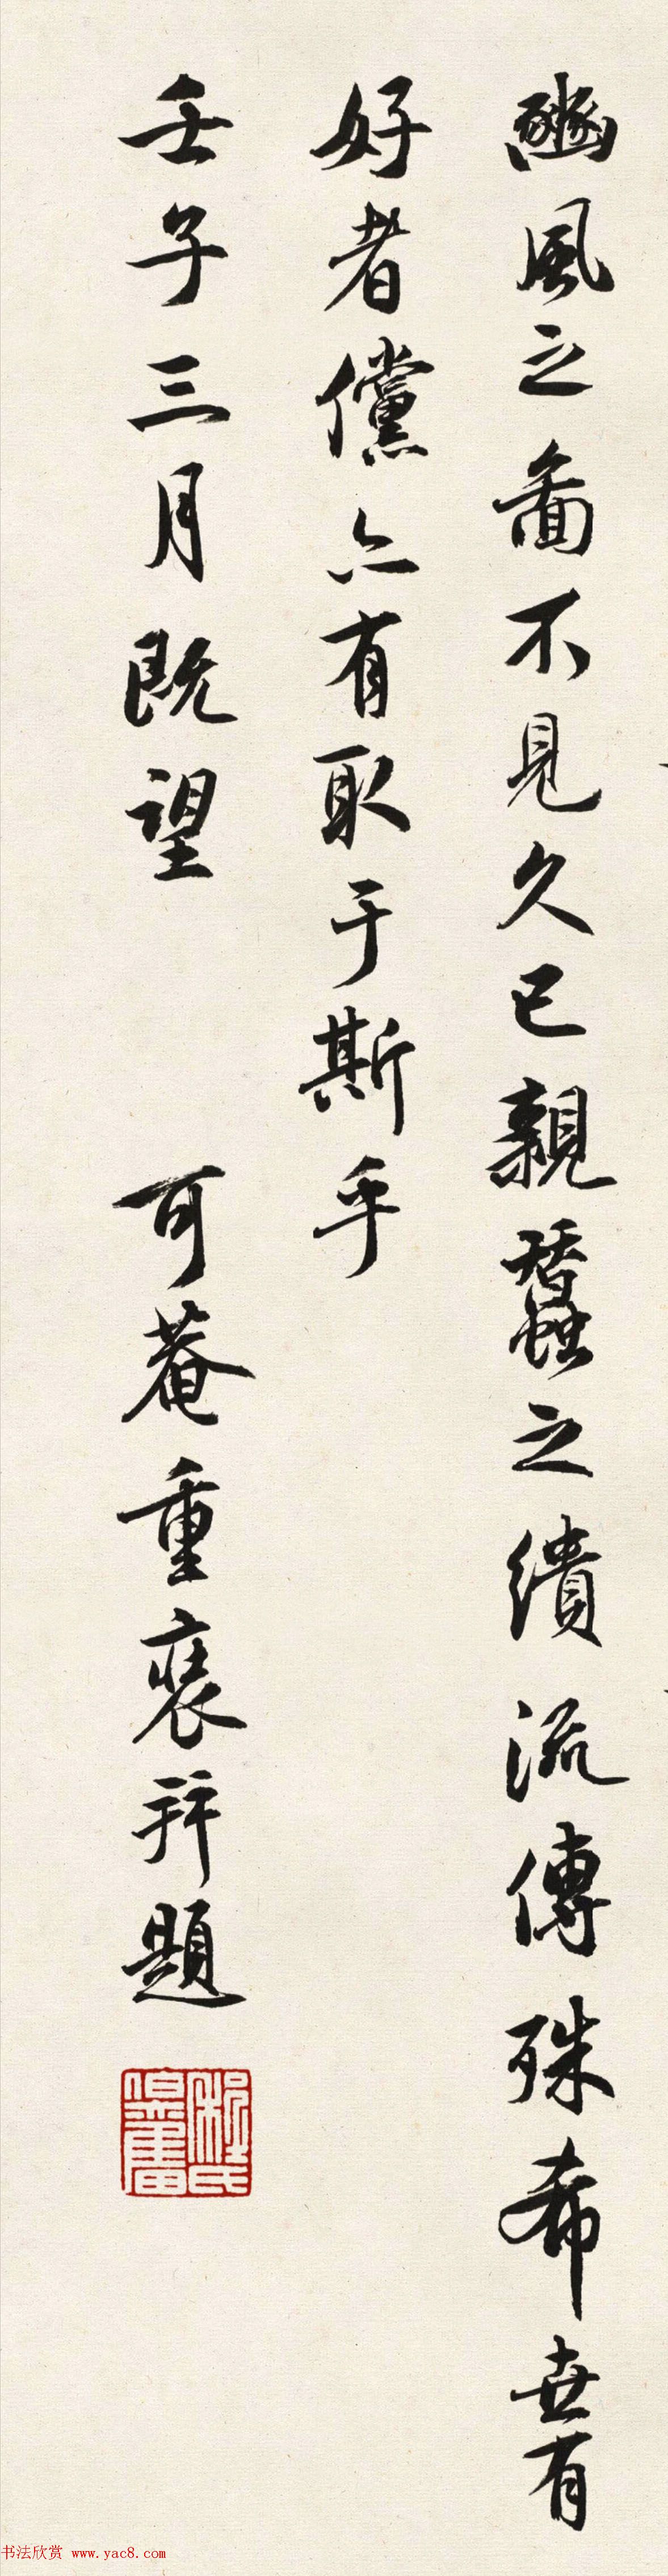 豳風之啚不見久已親蠶之繢流傳殊希世有
好者儻亦有取于斯乎
壬子三月既望 可菴重裝并題
程氏
書法欣赏 www.yac8.com